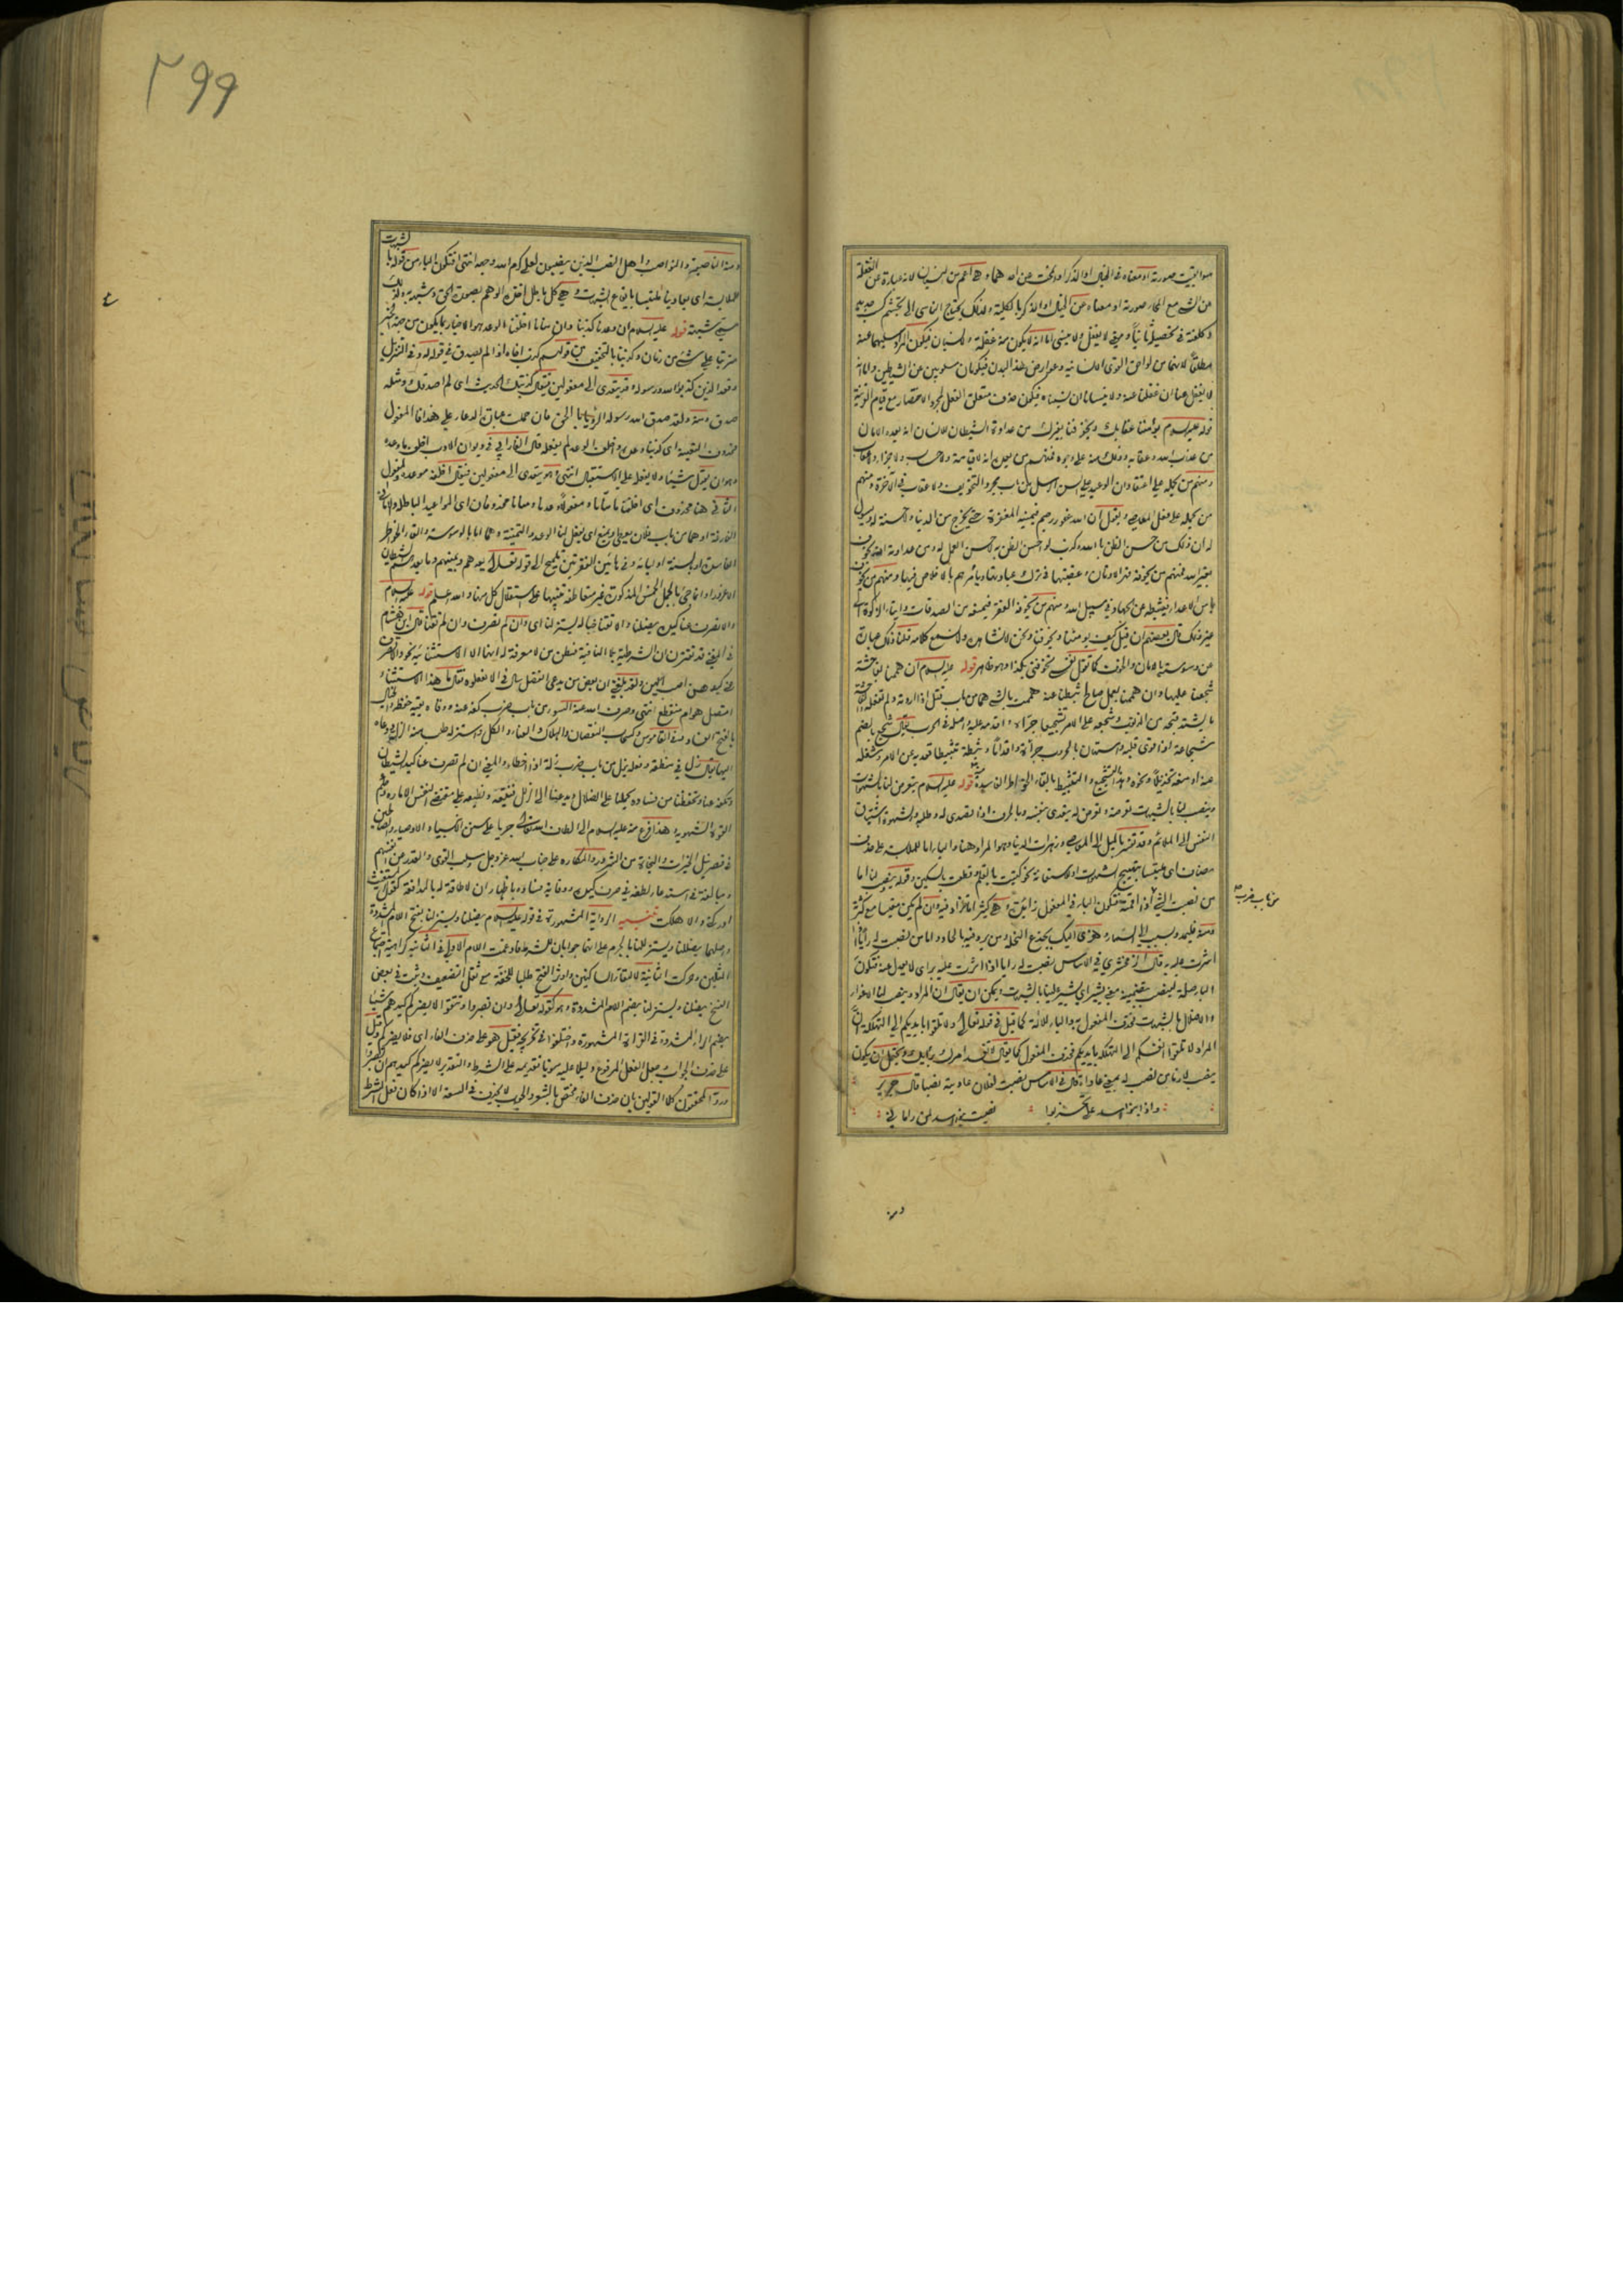 سواء بقيت صورته او معناه في الخيال او الذكر او انمحت عن احدهما وهي اعم من النسيان لانه عبارة عن الغفلة
عن الشيء مع انمحاء صورته او معناه عن الخيال او الذكر بالكلية ولذلك يحتاج الناسي الى تجشم كسب جديد
وكلفة في تحصيله ثانيا وحيث لا يغفل ولا ينسى اما انه لا يكون منه غفلة ولا نسيان فيكون المراد سلبهما عنه
مطلقا لانهما من لواحق القوى الانسانيه وعوارض هذا البدن فيكونان مسلوبين عن الشياطين واما انه
لا يغفل عنا ان غفلنا عنه ولا ينسانا ان نسيناه فيكون حذف متعلق الفعل لمجرد الاختصار مع قيام القرينة
قوله عليه السلام يؤمننا عقابك ويخوفنا بغيرك من عداوة الشيطان للانسان انه يعده الامان
من عذاب الله وعقابه وذلك منه على وجوه فمنهم من يعول انه لا قيامة ولا حساب ولا جزاء ولا عقاب
ومنهم من يحمله على اعتقاد ان الوعيد على السن الرسل من باب مجرد التخويف ولا عقاب في الآخرة ومنهم
من يحمله على فعل المعاصي ويقول ان الله غفور رحيم فيمنيه المغفرة حتى يخرج من الدنيا ولا حسنة له ويسول
له ان ذلك من حسن الظن بالله وكذب لو احسن الظن به لاحسن العمل له ومن عداوته انه يخوف
بغير الله فمنهم من يخوفه من الاوثان وعقبتها في ترك عبادتها ويأمرهم بالاخلاص فيها ومنهم من يخوفه
باس الاعداء فيثبطه عن الجهاد في سبيل الله ومنهم من يخوفه الفقر فيمنعه من الصدقات وايتاء الزكوة الى
غير ذلك قال بعضهم ان قيل كيف يؤمننا ويخوفنا ونحن لا نشاهده ولا نسمع كلامه قلنا ذلك عبارة
عن وسوسته بالامان والخوف كما تقول نفسي تخوفني بكذا وهو ظاهر قوله عليه السلام ان هممنا بفاحشة
شجعنا عليها وان هممنا بعمل صالح ثبطنا عنه هممت بالشيء هما من باب قتل اذا اردته ولم تفعله والفاحشة
ما يشتد قبحه من الذنوب وشجعه على الامر تشجيعا جرأه واقدمه عليه واصله في الحرب يقال شجع بالضم
شجاعة اذا قوي قلبه واستهان بالحروب جرأة واقداما وثبطه تثبيطا قعد به عن الامر وشغله
عنه او منعه تخذيلا ونحوه وهذا التشجيع والتثبيط بالقاء الخواطر الفاسدة قوله عليه السلام يتعرض لنا بالشهوات
وينصب لنا بالشبهات تعرضه وتعرض له يتعدى بنفسه وبالحرف اذا تصدى له وطلبه والشهوة اشتياق
النفس الى الملائم وقد تفسر بالميل الى المعاصي وزهرات الدنيا وهو المراد هنا والباء اما للملابسة على حذف
مضاف اي ملتبسا بتهييج الشهوات او للاستعانة نحو كتبت بالقلم وقطعت بالسكين وقوله ينصب لنا اما
من نصبت الشيء اذا اقمته فتكون الباء في المفعول زائدة وهي كثيرا ما تزاد فيه وان لم يكن مقيسا مع كثرته
ومنه فليمدد بسبب الى السماء وهزي اليك بجذع النخلة ومن يرد فيه بالحاد واما من نصبت له رأيا اذا
اشرت عليه قال الزمخشري في الاساس نصبت له رايا اذا اشرت عليه براي لا يعدل عنه فتكون
الباء صلة لينصب بتضمينه معنى يشير اي يشير لنا بالشبهات ويمكن ان يقال ان المراد وينصب لنا الاغواء
والاضلال بالشبهات فحذف المفعول به والباء للآلة كما قيل في قوله تعالى ولا تلقوا بايديكم الى التهلكة ان
المراد لا تلقوا انفسكم الى التهلكة بايديكم فحذف المفعول كما يقال لا تفسد امرك برأيك ويحتمل ان يكون
ينصب لنا من نصب له بمعنى عاداه قال في الاساس نصبت لفلان عاديته نصبا قال جرير
واذا بنو اسد علي تحزبوا نصبت بنو اسد لمن راماني
مؤنا ب ضرب
ومنه
۲۹۹
ومنه الناصبية والنواصب واهل النصب الذين ينصبون لعلي كرم الله وجهه انتهى فتكون الباء من قوله بالشبهات
للملابسة اي يعادينا ملتبسا بايقاع الشبهات وهي كل باطل اخذه الوهم بصورة الحق وشبهه به ولذلك
سمي شبهة قوله عليه السلام ان وعدنا كذبنا وان منانا اخلفنا الوعد هو الاخبار بما يكون من جهة المخبر
مترتبا على شيء من زمان وكذبنا بالتخفيف من قولهم كذب اخاه اذا لم يصدق في قوله له وفي التنزيل
وقعد الذين كذبوا الله ورسوله وقد يتعدى الى مفعولين فيقال كذبتك الحديث اي لم اصدقك ومثله
صدق ومنه ولقد صدق الله رسوله الرؤيا بالحق فان حملت عبارة الدعاء على هذا فالمفعول
محذوف للتقييد اي كذبنا وعده واخلف الوعد لم يفعله قال الفارابي في ديوان الادب اخلفه ما وعده
وهو ان يقول شيئا ولا يفعله على الاستقبال انتهى وهو يتعدى الى مفعولين فيقال اخلفه موعده والمفعول
الثاني هنا محذوف اي اخلفنا ما منانا ومفعولا وعدنا ومنانا محذوفان اي المواعيد الباطلة والاماني
الفارغة او هما من باب فلان يعطي ويمنع اي يفعل لنا الوعد والتمنية وهما اما بالوسوسة والقاء الخواطر
الفاسدة او بلسنة اوليائه وفي هاتين الفقرتين تلميح الى قوله تعالى يعدهم ويمنيهم وما يعدهم الشيطان
الا غرورا وانما جيء بالجمل الخمس المذكورة غير متعاطفة تنبيها على استقلال كل منها والله اعلم قوله عليه السلام
والا تصرف عنا كيده يضلنا والا تقنا خباله يستزلنا اي وان لم تصرف وان لم تقنا قال ابن هشام
في المغني قد تقترن ان الشرطية بلا النافية فيظن من لا معرفة له انها الا الاستثنائية نحو والا تصرف
عني كيدهن اصب اليهن ولقد بلغني ان بعض من يدعي الفضل سال في الا تفعلوه فقال ما هذا الاستثناء
امتصل هو ام منقطع انتهى وصرف الله عنه السوء من باب ضرب كفه عنه ووقاه يقيه حفظه والخبال
بالفتح الفساد وفي القاموس وكسحاب النقصان والهلاك والعناء والكل واستزله طلب منه الزلل ودعاه
اليها يقال زل في منطقه وفعله يزل من باب ضرب زلة اذا اخطاء والمعنى ان لم تصرف عنا كيد الشيطان
وتكفه عنا وتحفظنا من فساده يحملنا على الضلال ويدعنا الى الزلل فنتبعه ونطيعه على مقتضى النفس الامارة وحكم
القوة الشهوية وهذا فزع منه عليه السلام الى الطاف الله تعالى جريا على سنن الانبياء والاوصياء والصالحين
في قصر نيل الخيرات والنجاة من الشرور والمكاره على جناب الله عز وجل وسلب القوى والقدر عن انفسهم
ومبالغة في استدعاء لطفه في صرف كيده ووقاية فساده باظهار ان لا طاقة له بالمدافعة كقول المستغيث
ادركني والا هلكت تنبيه الرواية المشهورة في قوله عليه السلام يضلنا ويستزلنا بفتح اللام المشددة
واصلهما يضللنا ويستزللنا بالجزم على انهما جوابان للشرط فادغمت اللام الاولى في الثانية كراهية اجتماع
المثلين وحركت الثانية لالتقاء الساكنين واوثر الفتح طلبا للخفة مع ثقل التضعيف وثبت في بعض
النسخ يضلنا ويستزلنا بضم اللام المشددة وهو كقوله تعالى وان تصبروا وتتقوا لا يضركم كيدهم شيئا
بضم الراء المشددة في القراءة المشهورة واختلفوا في تخريجه فقيل هو على حذف الفاء اي فلا يضركم وقيل
على حذف الجواب بجعل الفعل المرفوع دليلا عليه منويا تقديمه على الشرط والتقدير لا يضركم كيدهم ان تصبروا
ورد المحققون كلا القولين بان حذف الفاء مختص بالشعر والجواب لا يحذف في السعة الا اذا كان فعل الشرط